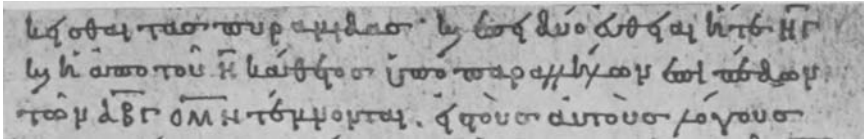 κεῖσθαι τὰς πυραμίδας· καὶ ἐπεὶ δύο εὐθεῖαι ἥ τε ΗΓ
καὶ ἡ ἀπὸ τοῦ Η κάθετος ὑπὸ παραλλήλων ἐπιπέδων
τῶν ΑΒΓ ΟΜΝ τέμνονται. εἰς τοὺς αὐτοὺς λόγους